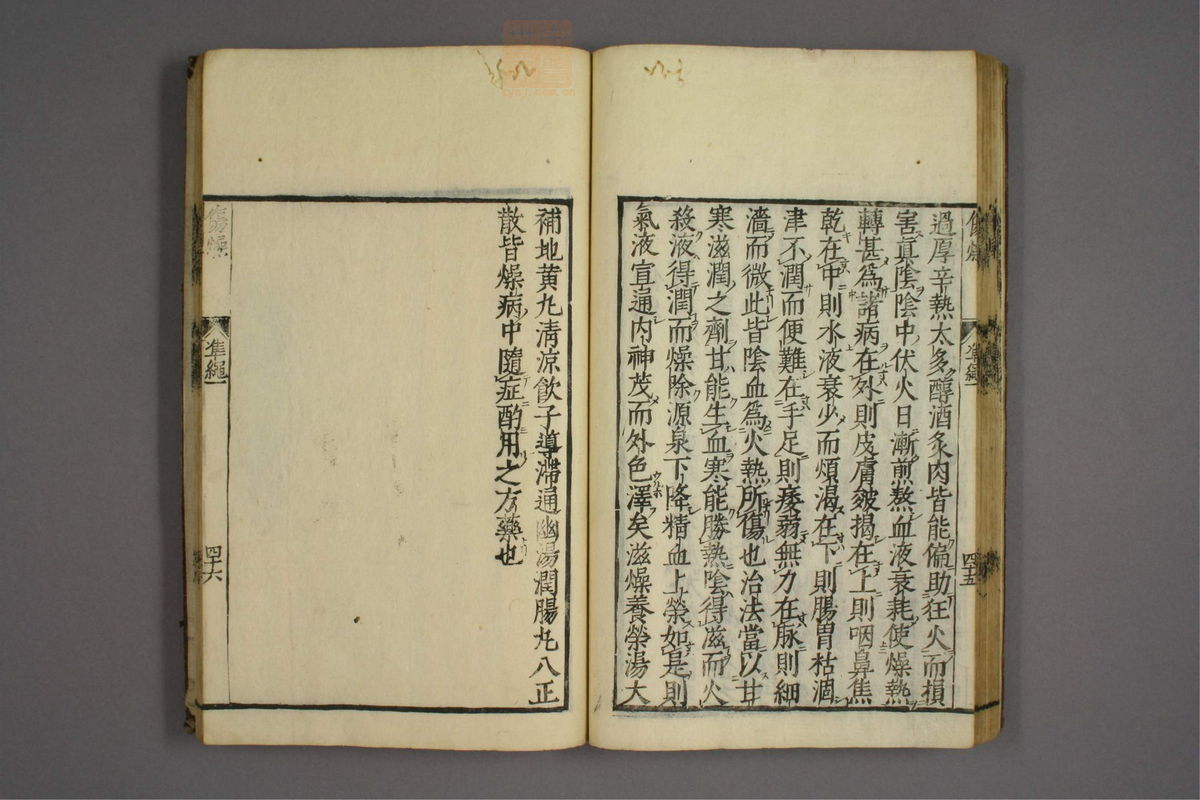 過厚辛熱太多醇酒炙肉皆能偏助狂火而損
害眞陰陰中伏火日漸煎熬血液衰耗使燥熱
轉甚爲諸病在外則皮膚皴揭在上則咽鼻焦
乾在中則水液衰少而煩渴在下則腸胃枯涸
津不潤而便難在手足則痿弱無力在脉則細
濇而微此皆陰血爲火熱所傷也治法當以甘
寒滋潤之劑甘能生血寒能勝熱陰得滋而火
殺液得潤而燥除源泉下降精血上榮如是則
氣液宣通内神茂而外色澤矣滋燥養榮湯大
傷燥
凖繩一
四十五
補地黄丸清涼飮子導滯通幽湯潤腸丸八正
散皆燥病中隨症酌用之方藥也
傷燥
凖繩一
四十六